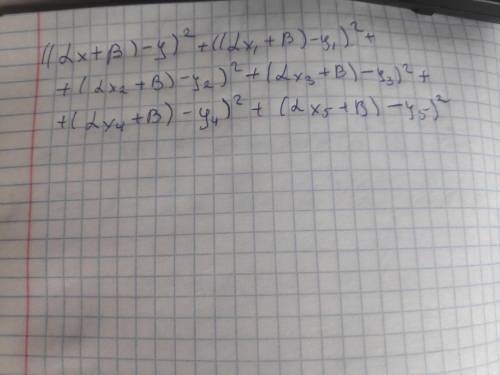 ((αx+β)-y)²+((αx₁+β)-y₁)²+
+(αx₂+β)-y₂)²+(αx₃+β)-y₃)²+
+(αx₄+β)-y₄)²+(αx₅+β)-y₅)²